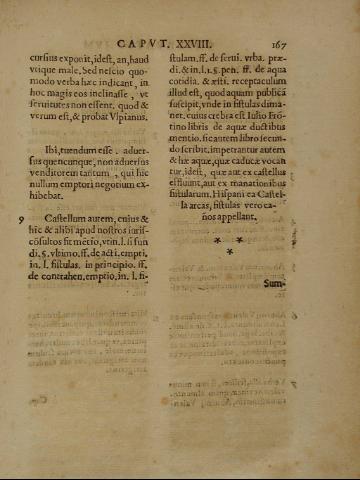 CAPVT. XXVIII. 167
cursius exponit, idest, an, haud
vtique male. Sed nescio quo-
modo verba hæc indicant, in
hoc magis eos inclinasse, vt
seruitutes non essent. quod &
verum est, & probat Vlpianus.
Ibi, tuendum esse. aduer-
sus quencunque, non aduersus
venditorem tantum, qui hic
nullum emptori negotium ex-
hibebat.
9 Castellum autem, cuius &
hic & alibi apud nostros iuris-
cōsultos fit mētio, vt in. l. si fun
di. §. vltimo. ff. de acti. empti.
in. l. fistulas. in principio. ff.
de contrahen. emptio. in. l. fi-
stulam. ff. de serui. vrba. præ-
di. & in. l. 1. §. pen. ff. de aqua
cotidia. & æsti. receptaculum
illud est, quod aquam publicā
suscipit, vnde in fistulas dima-
net. cuius crebra est Iulio Frō-
tino libris de aquæ ductibus
mentio. sic autem libro secun-
do scribit. impetrantur autem
& hæ aquæ, quæ caducæ vocan
tur, idest, quæ aut ex castellis
effluunt, aut ex manationibus
fistularum. Hispani ea Castel-
la arcas, fistulas vero ca-
ños appellant.
* *
*
Sum-